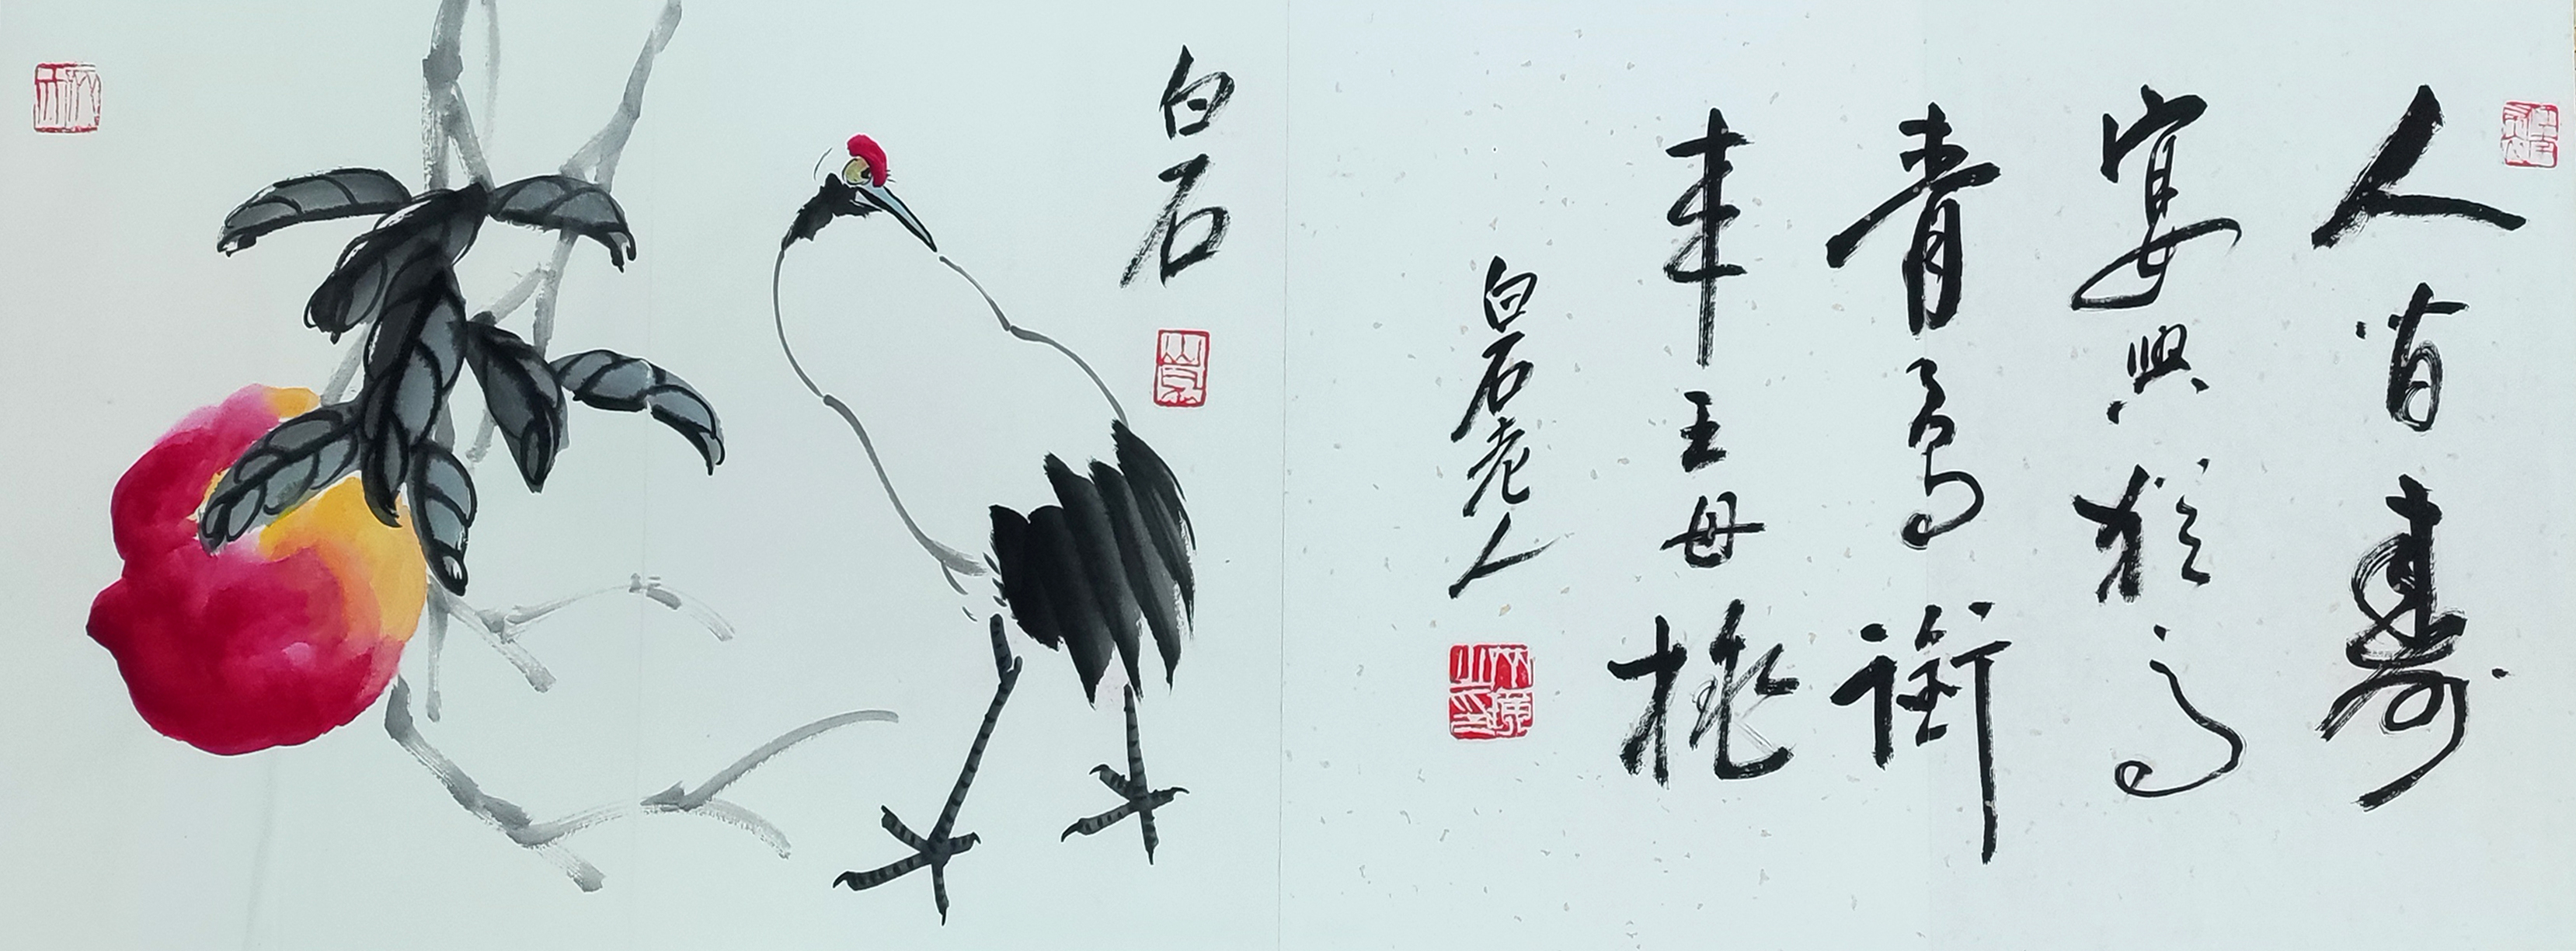 人有寿
宴興犹高
青鸟衔
来王母桃
白石老人
白石